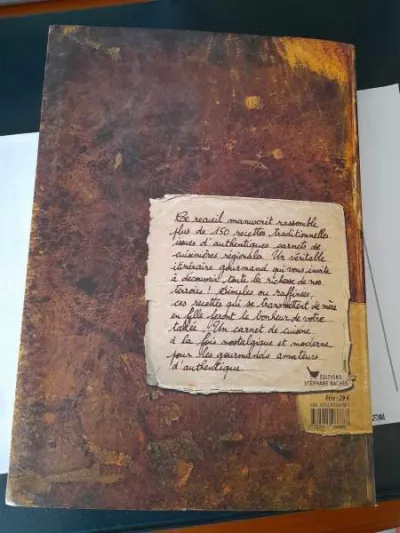 Ce recueil manuscrit rassemble
plus de 150 recettes traditionnelles
issues d'authentiques carnets de
cuisinières régionales ! Un véritable
itinéraire gourmand qui vous invite
à découvrir toute la richesse de nos
terroirs ! Simples ou raffinées,
ces recettes qui se transmettent de mère
en fille feront le bonheur de votre
tablée. Un carnet de cuisine
à la fois nostalgique et moderne
pour les gourmands amateurs
d'authentique.
ÉDITIONS
STÉPHANE BACHÈS
Prix : 29 €